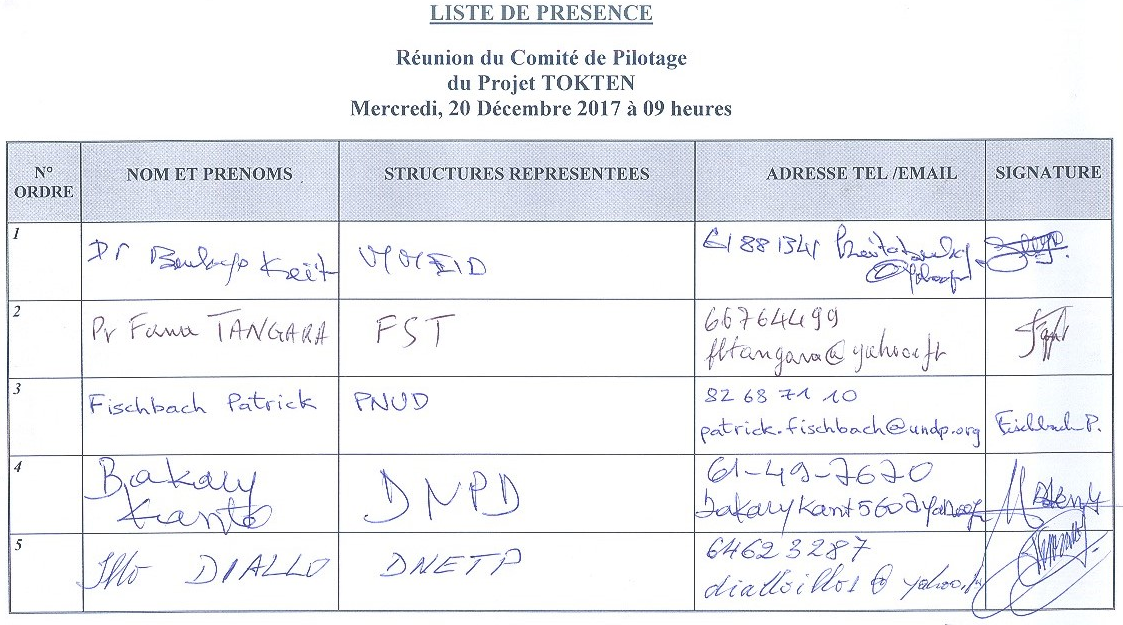 LISTE DE PRESENCE
Réunion du Comité de Pilotage
du Projet TOKTEN
Mercredi, 20 Décembre 2017 à 09 heures
N° ORDRE NOM ET PRENOMS STRUCTURES REPRESENTEES ADRESSE TEL /EMAIL SIGNATURE
1
Dr
2
Pr Fana TANGARA FST 66764499
fltangara@yahoo.fr
3
Fischbach Patrick PNUD 82 68 71 10
patrick.fischbach@undp.org Fischbach P.
4
Bakary DNPD 61-49-7670
Kanté
5
DIALLO DNETP 64623287